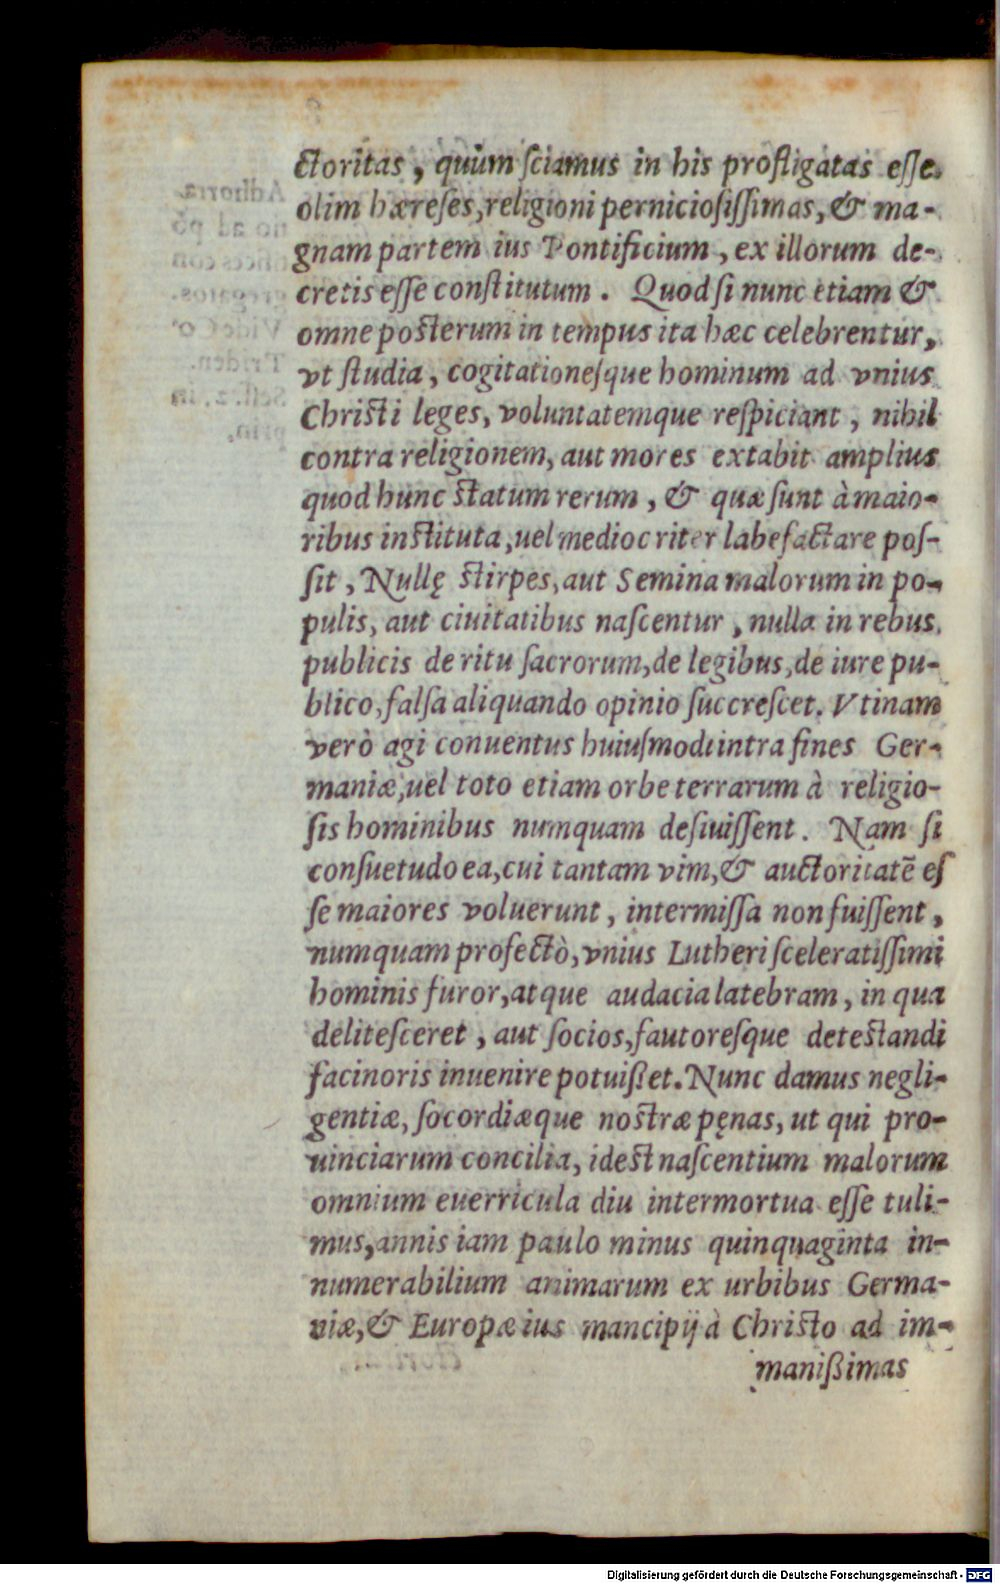 ctoritas, quùm ſciamus in his profligatas eſſe
olim hæreſes, religioni pernicioſiſſimas, & ma-
gnam partem ius Pontificium, ex illorum de-
cretis eſſe conſtitutum. Quod ſi nunc etiam &
omne poſterum in tempus ita hæc celebrentur,
vt ſtudia, cogitationeſque hominum ad vnius
Chriſti leges, voluntatemque reſpiciant, nihil
contra religionem, aut mores extabit amplius
quod hunc ſtatum rerum, & quæ ſunt à maio-
ribus inſtituta, uel mediocriter labefactare poſ-
ſit, Nullę ſtirpes, aut Semina malorum in po-
pulis, aut ciuitatibus naſcentur, nulla in rebus
publicis de ritu ſacrorum, de legibus, de iure pu-
blico, falſa aliquando opinio ſuccreſcet. Vtinam
verò agi conuentus huiuſmodi intra fines Ger-
maniæ, uel toto etiam orbe terrarum à religio-
ſis hominibus numquam deſiuiſſent. Nam ſi
conſuetudo ea, cui tantam vim, & auctoritatē eſ
ſe maiores voluerunt, intermiſſa non fuiſſent,
numquam profectò, vnius Lutheri ſceleratiſſimi
hominis furor, atque audacia latebram, in qua
deliteſceret, aut ſocios, fautoreſque deteſtandi
facinoris inuenire potuißet. Nunc damus negli-
gentiæ, ſocordiæque noſtræ pęnas, ut qui pro-
uinciarum concilia, ideſt naſcentium malorum
omnium euerricula diu intermortua eſſe tuli-
mus, annis iam paulo minus quinquaginta in-
numerabilium animarum ex urbibus Germa-
niæ, & Europæ ius mancipij à Chriſto ad im-
manißimas
Digitalisierung gefördert durch die Deutsche Forschungsgemeinschaft - DFG